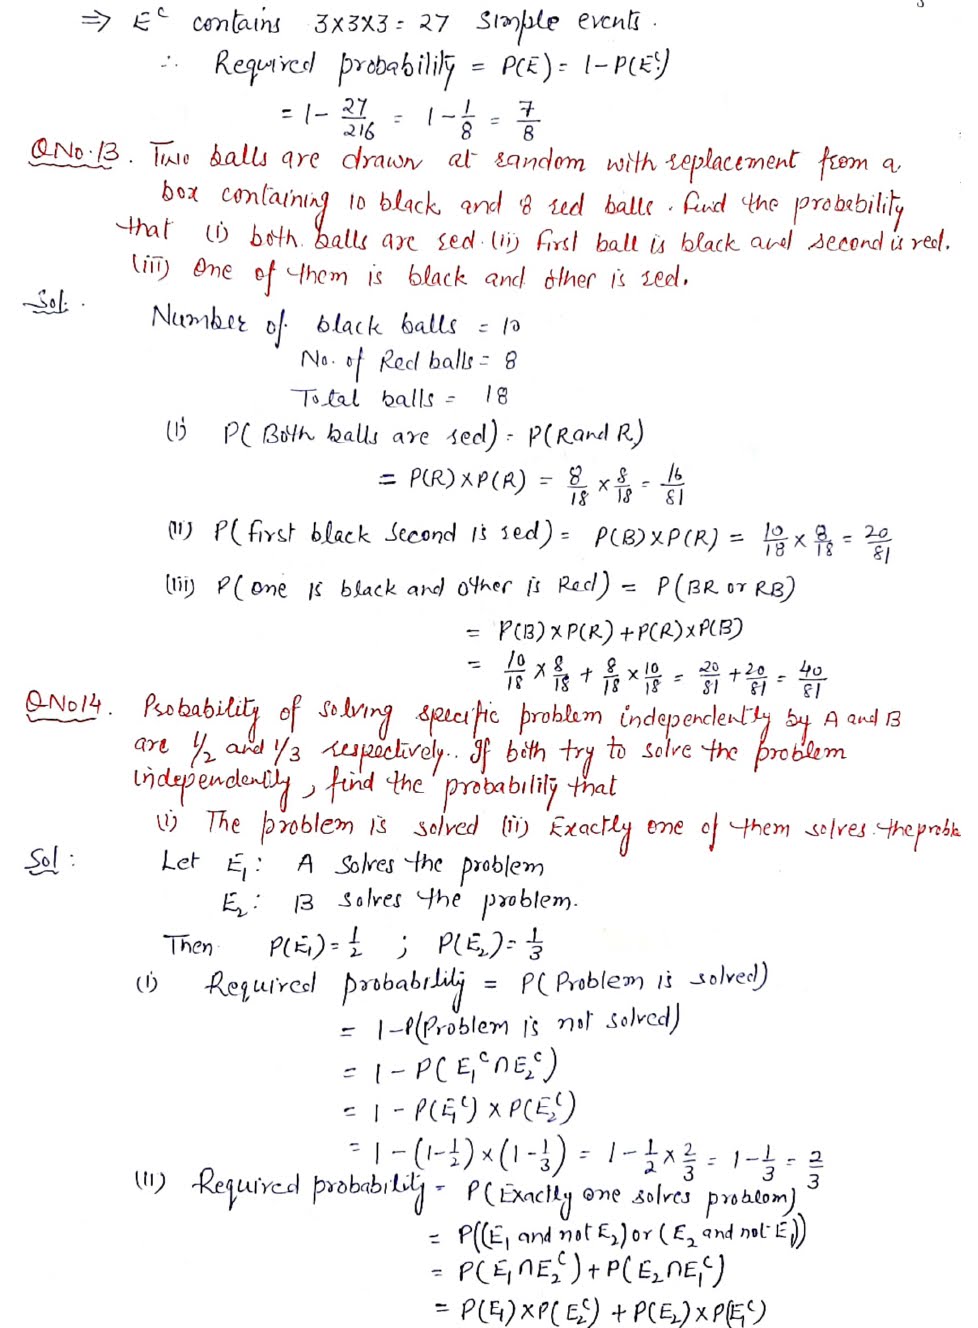 ⇒ Eᶜ contains 3×3×3 = 27 Simple events.
∴ Required probability = P(E) = 1 - P(Eᶜ)
= 1 - 27/216 = 1 - 1/8 = 7/8
QNo.13. Two balls are drawn at random with replacement from a
box containing 10 black and 8 red balls. find the probability
that (i) both balls are red. (ii) first ball is black and second is red.
(iii) One of them is black and other is red.
Sol:
Number of black balls = 10
No. of Red balls = 8
Total balls = 18
(i) P(Both balls are red) = P(R and R)
= P(R) × P(R) = 8/18 × 8/18 = 16/81
(ii) P(first black second is red) = P(B) × P(R) = 10/18 × 8/18 = 20/81
(iii) P(one is black and other is Red) = P(BR or RB)
= P(B) × P(R) + P(R) × P(B)
= 10/18 × 8/18 + 8/18 × 10/18 = 20/81 + 20/81 = 40/81
QNo14. Probability of solving specific problem independently by A and B
are 1/2 and 1/3 respectively. If both try to solve the problem
independently, find the probability that
(i) The problem is solved (ii) Exactly one of them solves the proble
Sol: Let E₁: A Solves the problem
E₂: B solves the problem.
Then P(E₁) = 1/2 ; P(E₂) = 1/3
(i) Required probability = P(Problem is solved)
= 1 - P(Problem is not solved)
= 1 - P(E₁ᶜ ∩ E₂ᶜ)
= 1 - P(E₁ᶜ) × P(E₂ᶜ)
= 1 - (1 - 1/2) × (1 - 1/3) = 1 - 1/2 × 2/3 = 1 - 1/3 = 2/3
(ii) Required probability = P(Exactly one solves problem)
= P((E₁ and not E₂) or (E₂ and not E₁))
= P(E₁ ∩ E₂ᶜ) + P(E₂ ∩ E₁ᶜ)
= P(E₁) × P(E₂ᶜ) + P(E₂) × P(E₁ᶜ)